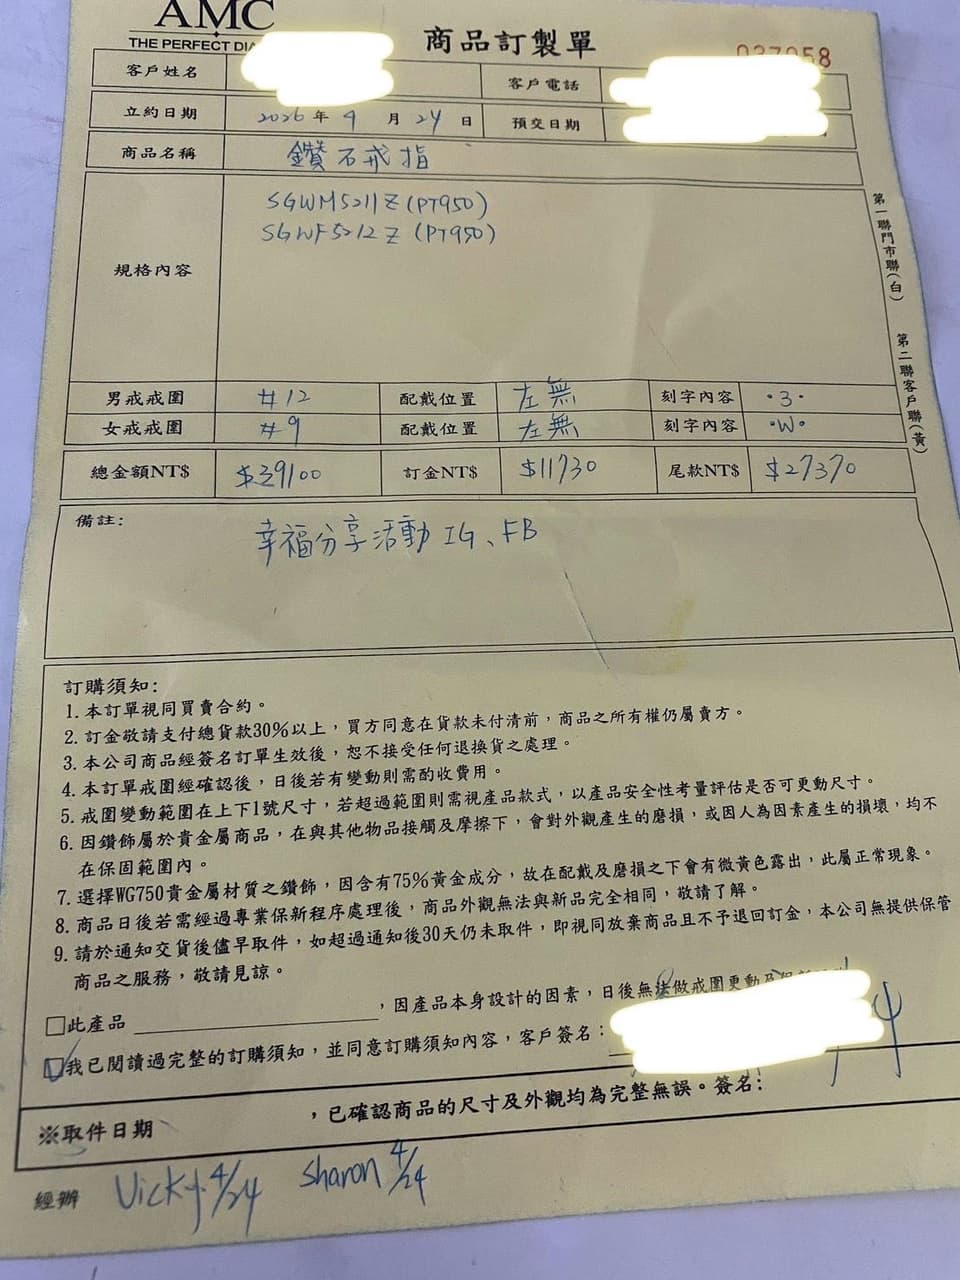 AMC
THE PERFECT DIA
商品訂製單
037058
客戶姓名
客戶電話
立約日期 2026年 4月 24日 預交日期
商品名稱 鑽石戒指
規格內容
SGWM5211Z (PT950)
SGWF5212Z (PT950)
男戒戒圍 #12 配戴位置 左無 刻字內容 ·3·
女戒戒圍 #9 配戴位置 左無 刻字內容 ·W·
總金額NT$ $39100 訂金NT$ $11730 尾款NT$ $27370
備註:
幸福分享活動 IG、FB
訂購須知:
1. 本訂單視同買賣合約。
2. 訂金敬請支付總貨款30%以上，買方同意在貨款未付清前，商品之所有權仍屬賣方。
3. 本公司商品經簽名訂單生效後，恕不接受任何退換貨之處理。
4. 本訂單戒圍經確認後，日後若有變動則需酌收費用。
5. 戒圍變動範圍在上下1號尺寸，若超過範圍則需視產品款式，以產品安全性考量評估是否可更動尺寸。
6. 因鑽飾屬於貴金屬商品，在與其他物品接觸及摩擦下，會對外觀產生的磨損，或因人為因素產生的損壞，均不
在保固範圍內。
7. 選擇WG750貴金屬材質之鑽飾，因含有75%黃金成分，故在配戴及磨損之下會有微黃色露出，此屬正常現象。
8. 商品日後若需經過專業保新程序處理後，商品外觀無法與新品完全相同，敬請了解。
9. 請於通知交貨後儘早取件，如超過通知後30天仍未取件，即視同放棄商品且不予退回訂金，本公司無提供保管
商品之服務，敬請見諒。
□此產品＿＿＿＿＿＿＿＿，因產品本身設計的因素，日後無法做戒圍更動及
☑我已閱讀過完整的訂購須知，並同意訂購須知內容，客戶簽名：
※取件日期 ，已確認商品的尺寸及外觀均為完整無誤。簽名:
經辦 Vicky 4/24 Sharon 4/24
第一聯門市聯(白)
第二聯客戶聯(黃)